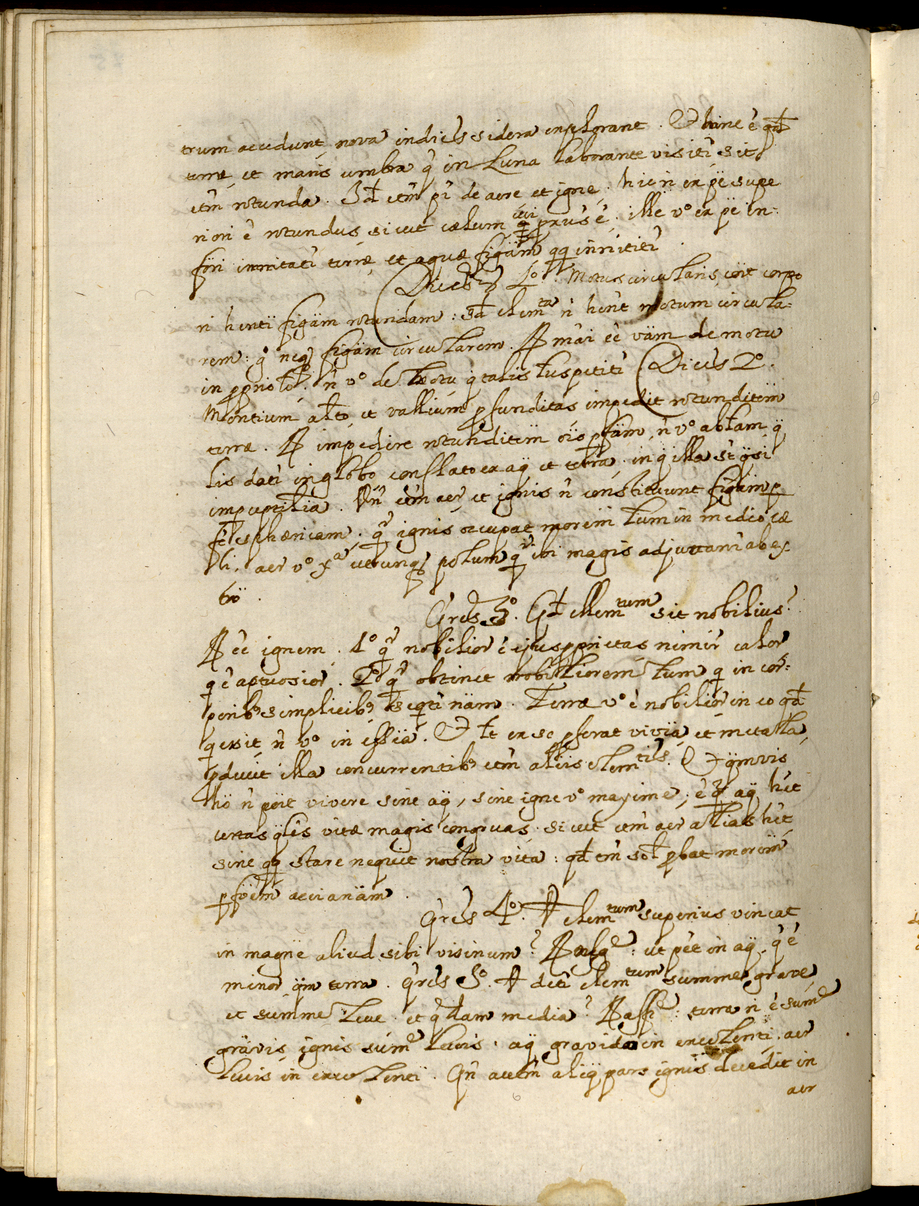 trum accidunt nova indies sidera explorant. Et hinc ē qđ
terræ et maris umbra q̃ in Luna laborante visitr̃ sit
etm̃ rotunda. Id etm̃ pr̃ de aere et igne: hic n̄ ex p̃e supe
riori ē rotundus sicut cælum cui pxus ē, ille vº ex p̃e in-
fori innitatr̃ terræ, et aquæ figãm qq innititr̃.
Dices 1º. Motus circularis cõit corpo
ri hẽnti figãm rotundam: sed elemta n̄ hẽnt motum circula-
rem: g̊ neq figãm circularem. R̃ m̃ai eẽ vãm de motu
in pprio lo. n̄ vº de motu q̃ talis suspetitr̃ Dices 2º.
Montium alto, et vallium pfunditas impedit rotunditẽm
terræ. R̃ impedire rotunditẽm oĩo pfãm, n̄ vº ablam q̃
lis datr̃ in globo conflato ex aq̃ et terra, in q̃ illa st̃ q̃si
imptibilia. Dñ etm̃ aer et ignis n̄ constituunt figãm p
fe sphæricam. q̃ ignis occupat morem lum in medio cæ
li, aer vº xa utrunq polum q̃ ubi magis adjuvant̃ ab ex
trõ.
Qres 3º. Qd elemtum sit nobilius?
R̃ eẽ ignem. 1º q̃ nobilior ē ejus pprietas nimir̃ calor
q̃ ē aptuosior. 2º q̃ obtinet nobiliorem lum q̃ in cor-
poribs simplicibs seqtr̃ nãm. Terra vº ē nobilior in eo qđ
q̃ exit, n̄ vº in essẽa. Et lt ex se pferat vivia, et metalla,
pducit illa concurrentibs etm̃ aliis elemtis. Et q̃mvis
hõ n̄ põit vivere sine aq̃, sine igne vº maxime; ē q̃ aq̃ hẽt
vertas q̃les vitæ magis congruas. sicut etm̃ aer alias hẽt
sine qq stare nequit nostra vita: qđ tm̃ sol pbat morem
pfoẽm accianãm.
Qres 4º. A elemtum superius vincat
in magne aliud sibi visinum? R̃ neg: ut pẽt in aq̃, q̃ ē
minor q̃m terra. Qres 5º. A detr̃ elemtum summe grave
et summe leve, et q̃dam media? R̃ affe: terra n̄ ē sume
gravis ignis sume levis, aq̃ gravida in excellenti, aer
levis in excellenti. Qñ autm̃ aliq̃ pars ignis decedit in
aer